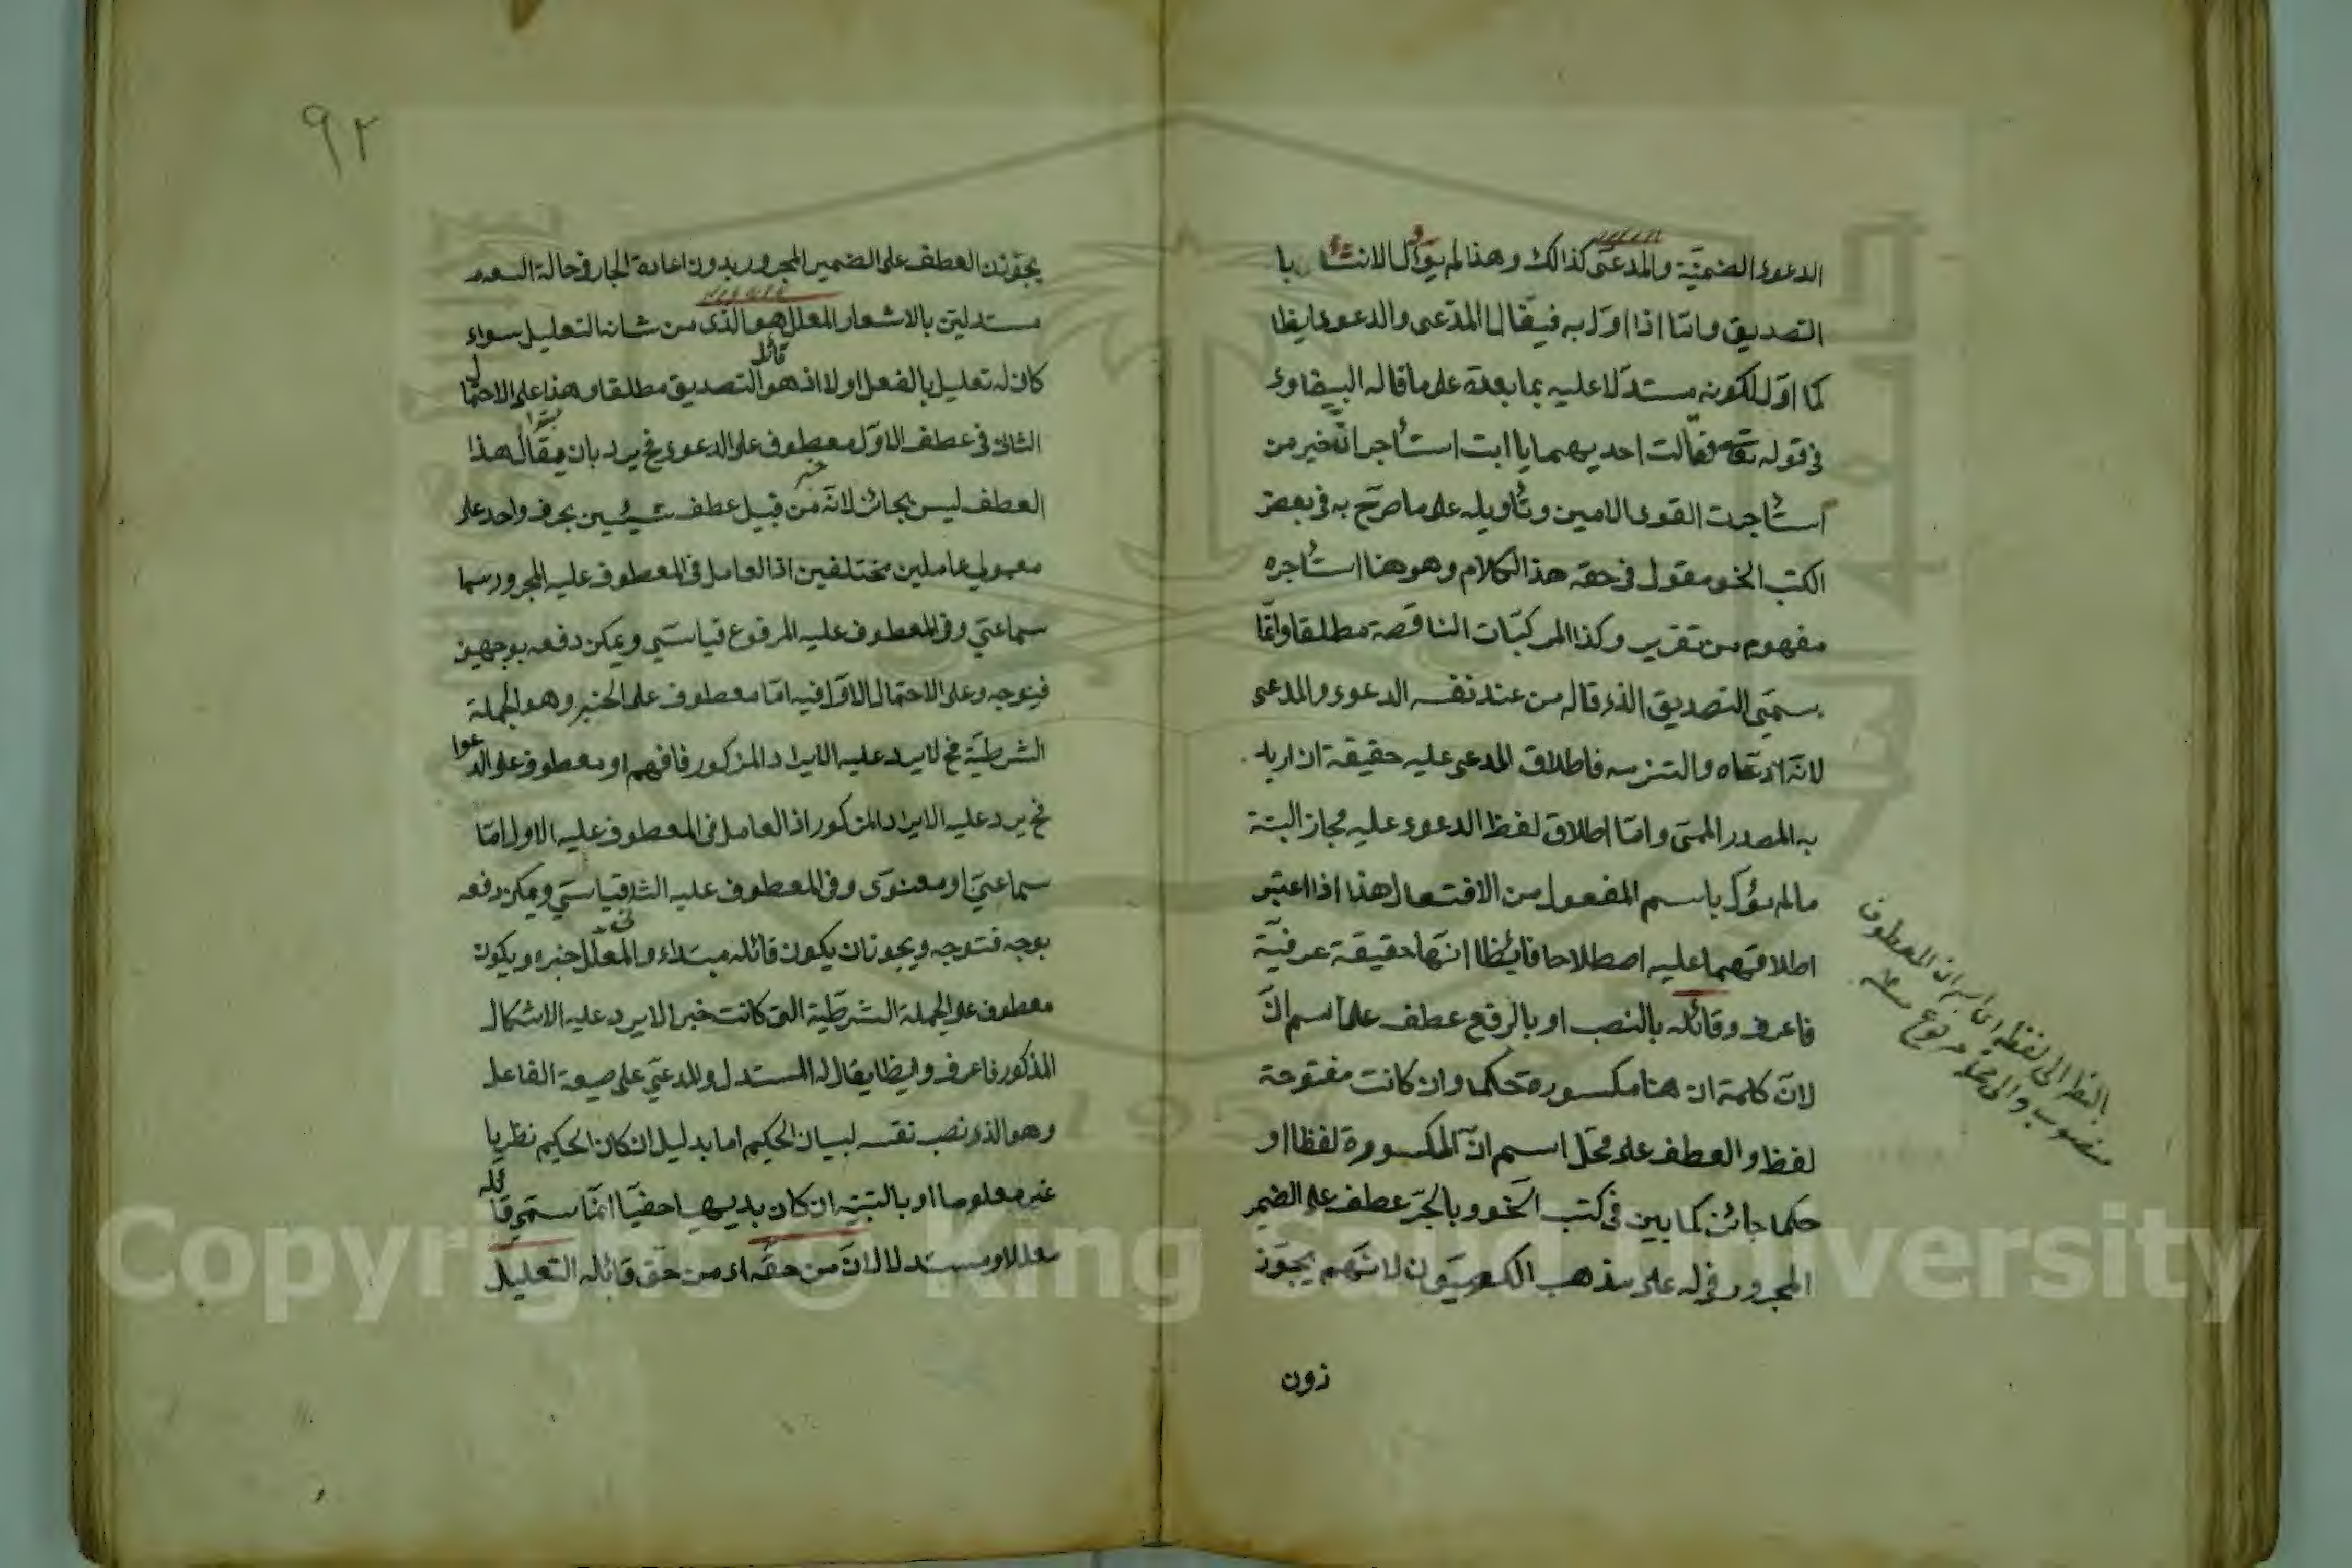 الدعوى الضمنيّة والمدعى كذالك وهذا لم يؤل الانشاء با
التصديق وامّا اذا اوّل به فيقال المدّعى والدعوى ايظا
كما اوّل لكونه مستدلا عليه بما بعده على ما قاله البيضاوى
فى قوله تع فقالت احديهما يا ابت استأجر انّ خير من
استأجرت القوى الامين وتأويله على ما صرّح به فى بعض
الكتب النحو مقول فى حقه هذا الكلام وهو هنا استأجره
مفهوم من تقرير وكذا المركبّات الناقصة مطلقا وانّما
يسمّى التصديق الذى قاله من عند نفسه الدعوى والمدعى
لانّه ادّعاه والتزمه فاطلاق المدعى عليه حقيقة ان اريد
به المصدر الميمى وامّا اطلاق لفظ الدعوى عليه مجاز البتة
مالم يؤل باسم المفعول من الافتعال هذا اذا اعتبر
اطلاقهما عليه اصطلاحا فايظا انّها حقيقة عرفيّة
فاعرف وقائله بالنصب او بالرفع عطف على اسم انّ
لانّ كلمة ان هنا مكسورة حكما وان كانت مفتوحة
لفظا والعطف على محلّ اسم انّ المكسورة لفظا او
حكما جائز كما بين فى كتب النحو وبالجرّ عطف على الضمير
المجرور فى له على مذهب الكوفيّون لانّهم يجوّز
زون
بالنظر الى لفظه اى اسم ان المعطوف
منصوب والى محله مرفوع
٩٢
يجوّزون العطف على الضمير المجرور بدون اعادة الجار فى حالة السعة
مستدلين بالاشعار المعلل هو الذى من شانه التعليل سواء
كان له تعليل بالفعل او لا اذ هو قائل التصديق مطلقا وهذا على الاحتمال
الثانى فى عطف الاوّل معطوف على الدعوى فح يرد بان يقال هذا
العطف ليس بجائز لانّه من قبيل عطف شيئين بحرف واحد على
معمولى عاملين مختلفين اذ العامل فى المعطوف عليه المجرور سما
سماعىّ وفى المعطوف عليه المرفوع قياسىّ ويمكن دفعه بوجهين
فيتوجه وعلى الاحتمال الاوّل فيه امّا معطوف على الخبر وهو الجملة
الشرطيّة فح لا يرد عليه الايراد المذكور فافهم او معطوف على الدعوا
فح يرد عليه الايراد المذكور اذ العامل فى المعطوف عليه الاول امّا
سماعىّ او معنوىّ وفى المعطوف عليه الثانى قياسىّ ويمكن دفعه
بوجه فتوجه ويجوز ان يكون قائله مبتداء والمعلّل خبره ويكون
معطوف على الجملة الشرطيّة التى كانت خبرا لا يرد عليه الاشكال
المذكور فاعرف وايظا يقال له المستدل والمدعىّ على صيغة الفاعل
وهو الذى نصب نفسه لبيان الحكيم اما بدليل ان كان الحكيم نظريا
غير معلوما او بالتنبيه ان كان بديهيا خفيّا انّما سمّى قائله
معللا ومستدلا لانّ من حقّه اى من حق قائله التعليل
Copyright © King Saud University
1957